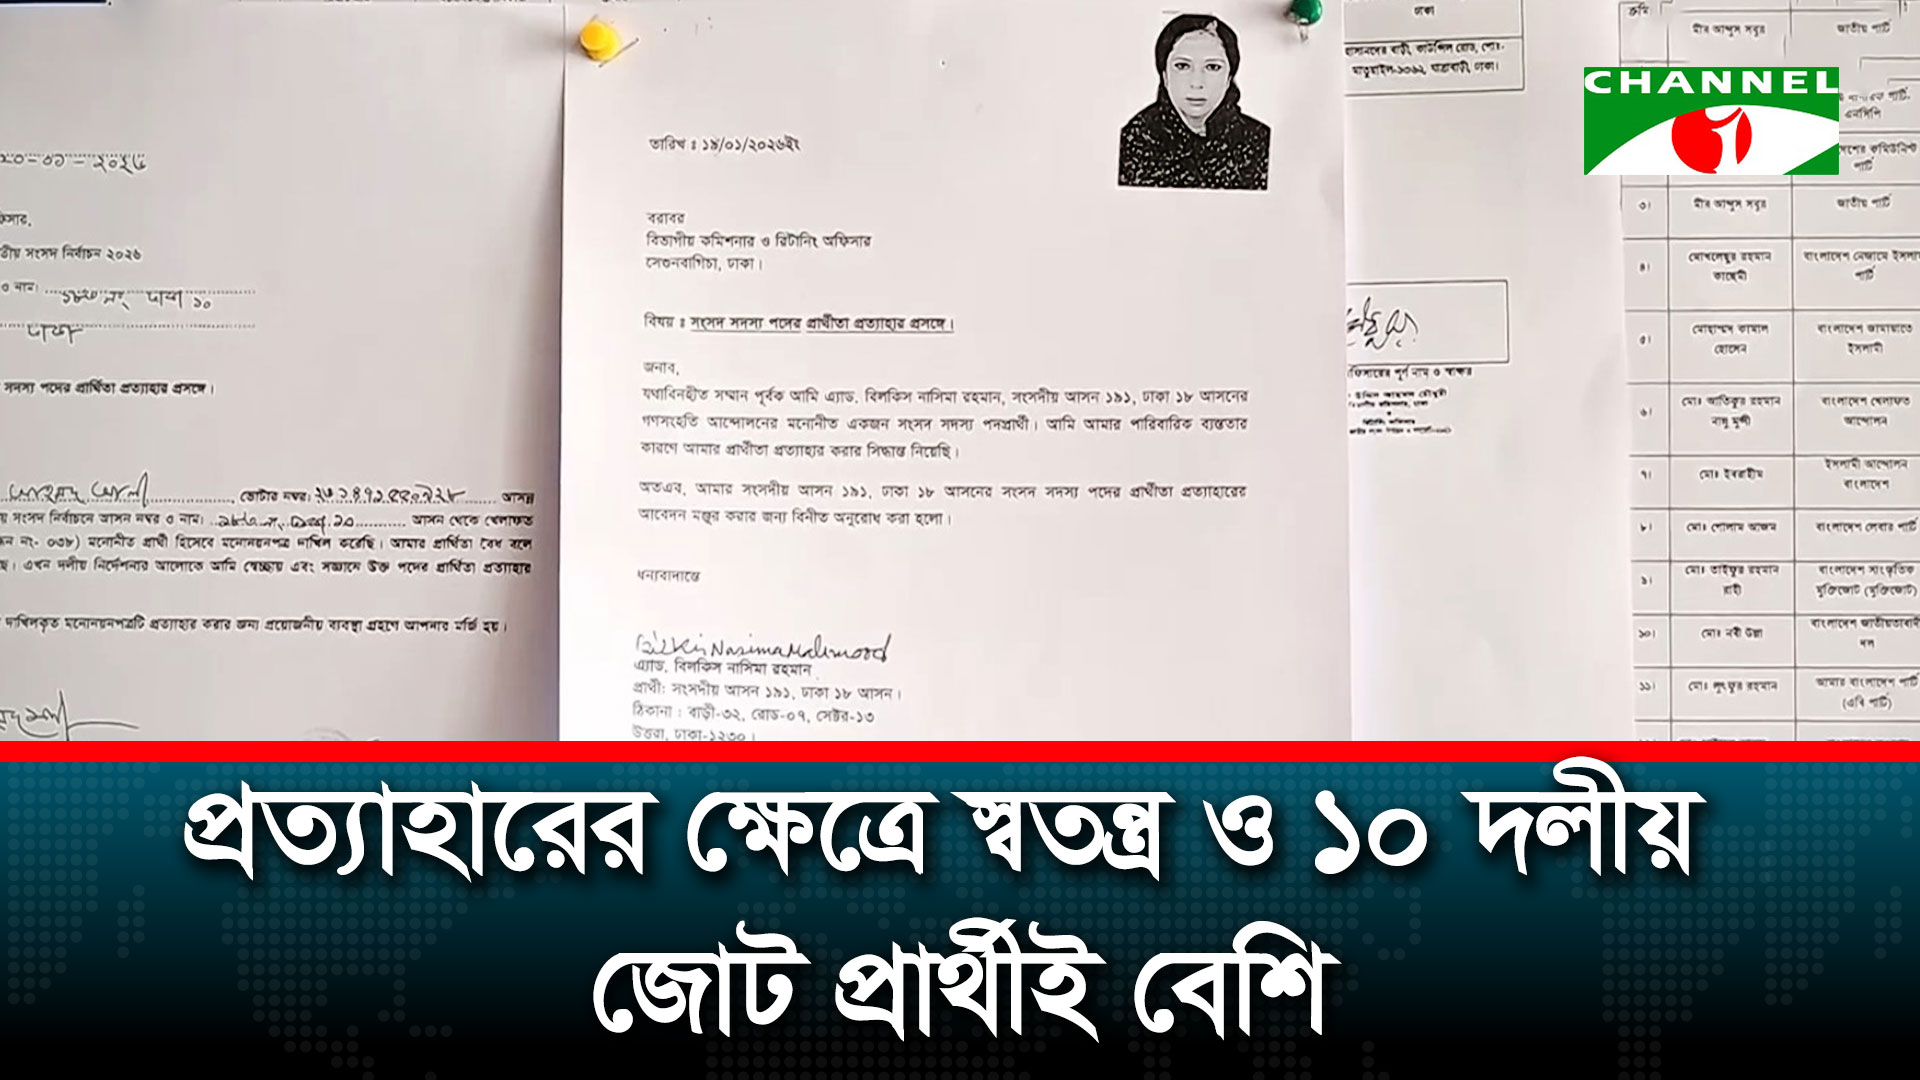 CHANNEL
i
২০-০১-২০২৬
তীয় সংসদ নির্বাচন ২০২৬
ও নাম:
ঢাকা ১০
ঢাকা
সদস্য পদের প্রার্থিতা প্রত্যাহার প্রসঙ্গে।
ভোটার নম্বর: আসন্ন
সংসদ নির্বাচনে আসন নম্বর ও নাম: আসন থেকে খেলাফত
ন নং- ০৩৮) মনোনীত প্রার্থী হিসেবে মনোনয়নপত্র দাখিল করেছি। আমার প্রার্থিতা বৈধ বলে
। এখন দলীয় নির্দেশনার আলোকে আমি স্বেচ্ছায় এবং সজ্ঞানে উক্ত পদের প্রার্থিতা প্রত্যাহার
দাখিলকৃত মনোনয়নপত্রটি প্রত্যাহার করার জন্য প্রয়োজনীয় ব্যবস্থা গ্রহণে আপনার মর্জি হয়।
তারিখ ঃ ১৯/০১/২০২৬ইং
বরাবর
বিভাগীয় কমিশনার ও রিটানিং অফিসার
সেগুনবাগিচা, ঢাকা।
বিষয় ঃ সংসদ সদস্য পদের প্রার্থীতা প্রত্যাহার প্রসঙ্গে।
জনাব,
যথাবিনহীত সম্মান পূর্বক আমি এ্যাড. বিলকিস নাসিমা রহমান, সংসদীয় আসন ১৯১, ঢাকা ১৮ আসনের
গণসংহতি আন্দোলনের মনোনীত একজন সংসদ সদস্য পদপ্রার্থী। আমি আমার পারিবারিক ব্যস্ততার
কারণে আমার প্রার্থীতা প্রত্যাহার করার সিদ্ধান্ত নিয়েছি।
অতএব, আমার সংসদীয় আসন ১৯১, ঢাকা ১৮ আসনের সংসদ সদস্য পদের প্রার্থীতা প্রত্যাহারের
আবেদন মঞ্জুর করার জন্য বিনীত অনুরোধ করা হলো।
ধন্যবাদান্তে
Bilkis Nasima Mahmood
এ্যাড. বিলকিস নাসিমা রহমান
প্রার্থী: সংসদীয় আসন ১৯১, ঢাকা ১৮ আসন।
ঠিকানা : বাড়ী-৩২, রোড-০৭, সেক্টর-১৩
উত্তরা, ঢাকা-১২৩০।
ঢাকা
বাড়ী, কাউন্সিল রোড, পোঃ-
মাতুয়াইল-১৩৬২, যাত্রাবাড়ী, ঢাকা।
অফিসারের পূর্ণ নাম ও স্বাক্ষর
মীর আব্দুস সবুর জাতীয় পার্টি
পার্টি-
এনসিপি
কমিউনিস্ট
পার্টি
৩। মীর আব্দুস সবুর জাতীয় পার্টি
৪। মোখলেছুর রহমান কাছেমী বাংলাদেশ নেজামে ইসলাম পার্টি
৫। মোহাম্মদ কামাল হোসেন বাংলাদেশ জামায়াতে ইসলামী
৬। মোঃ আতিকুর রহমান নান্নু মুন্সী বাংলাদেশ খেলাফত আন্দোলন
৭। মোঃ ইবরাহীম ইসলামী আন্দোলন বাংলাদেশ
৮। মোঃ গোলাম আজম বাংলাদেশ লেবার পার্টি
৯। মোঃ তাইফুর রহমান রাহী বাংলাদেশ সাংস্কৃতিক মুক্তিজোট (মুক্তিজোট)
১০। মোঃ নবী উল্লা বাংলাদেশ জাতীয়তাবাদী দল
১১। মোঃ লুৎফুর রহমান আমার বাংলাদেশ পার্টি (এবি পার্টি)
প্রত্যাহারের ক্ষেত্রে স্বতন্ত্র ও ১০ দলীয়
জোট প্রার্থীই বেশি